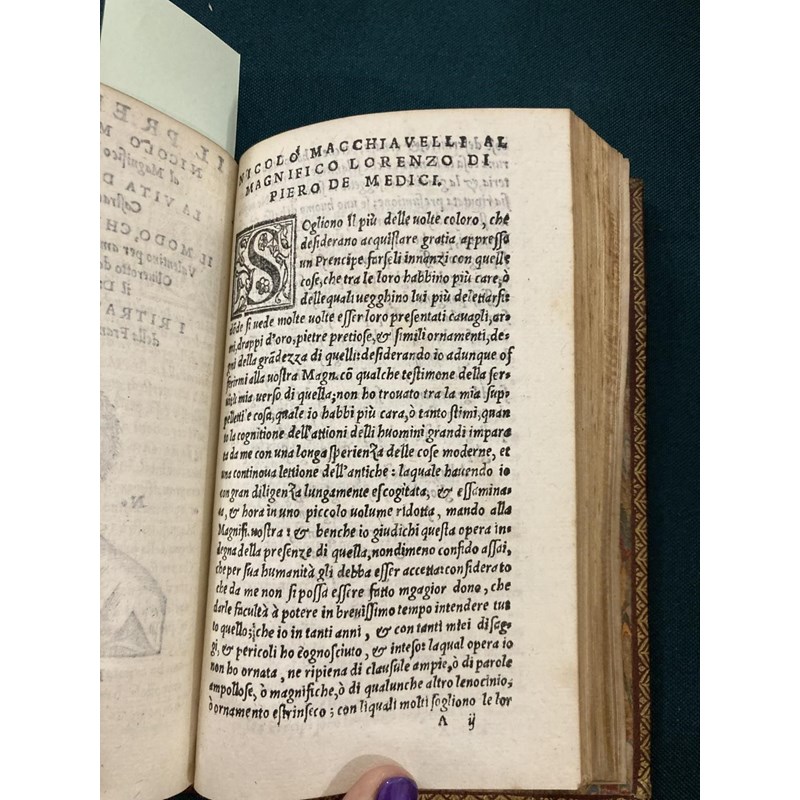 IL PRE
NICOLO M
al Magnifico
LA VITA D
Castru
IL MODO, CH
Valentino per am
Oliverotto da
il D
I RITRA
della Fran
N.
NICOLO MACCHIAVELLI AL
MAGNIFICO LORENZO DI
PIERO DE MEDICI.
SOgliono Il più delle uolte coloro, che
desiderano acquistare gratia appresso
un Prencipe farseli innanzi con quelle
cose, che tra le loro habbino più care, ò
delle quali uegghino lui più delettarsi:
dōde si uede molte uolte esser loro presentati cauagli, ar-
mi, drappi d'oro, pietre pretiose, & simili ornamenti, de-
gni della grādezza di quelli: desiderando io adunque of
ferirmi alla uostra Magn. cō qualche testimone della ser-
uitù mia uerso di quella; non ho trouato tra la mia sup-
pelletti e cosa, quale io habbi più cara, ò tanto stimi, quan
to la cognitione dell'attioni delli huomini grandi impara
ta da me con una longa sperienza delle cose moderne, et
una continoua lettione dell'antiche: laquale hauendo io
con gran diligenza lungamente escogitata, & essamina-
ta, & hora in uno piccolo uolume ridotta, mando alla
Magnifi. uostra: & benche io giudichi questa opera in-
degna della presenze di quella, nondimeno confido assai,
che per sua humanità gli debba esser accetta: considerato
che da me non si possa essere fatto mgagior dono, che
darle facultà à potere in breuissimo tempo intendere tut
to quello; che io in tanti anni, & con tanti miei disag-
gi, & pericoli ho cognosciuto, & inteso: laqual opera io
non ho ornata, ne ripiena di clausule ampie, ò di parole
ampollose, ò magnifiche, ò di qualunche altro lenocinio,
ò ornamento estrinseco; con li quali molti sogliono le lor
A ij